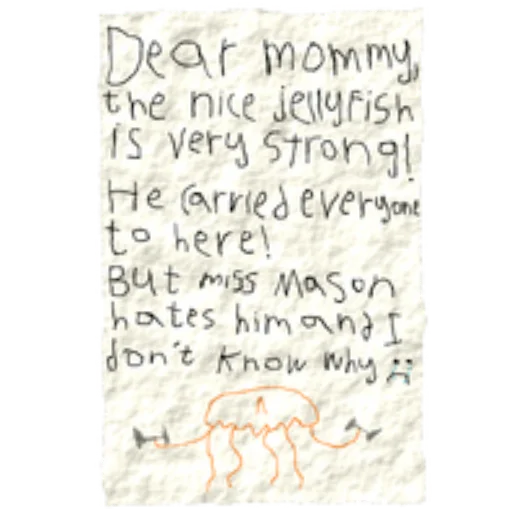 Dear mommy,
the nice jellyfish
is very strong!
He carried everyone
to here!
But miss Mason
hates him and I
don't know why :(